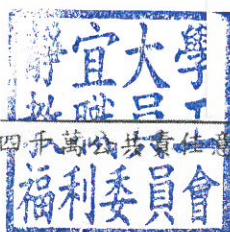 靜宜大學
教職員工
四千萬公共責任意
福利委員會